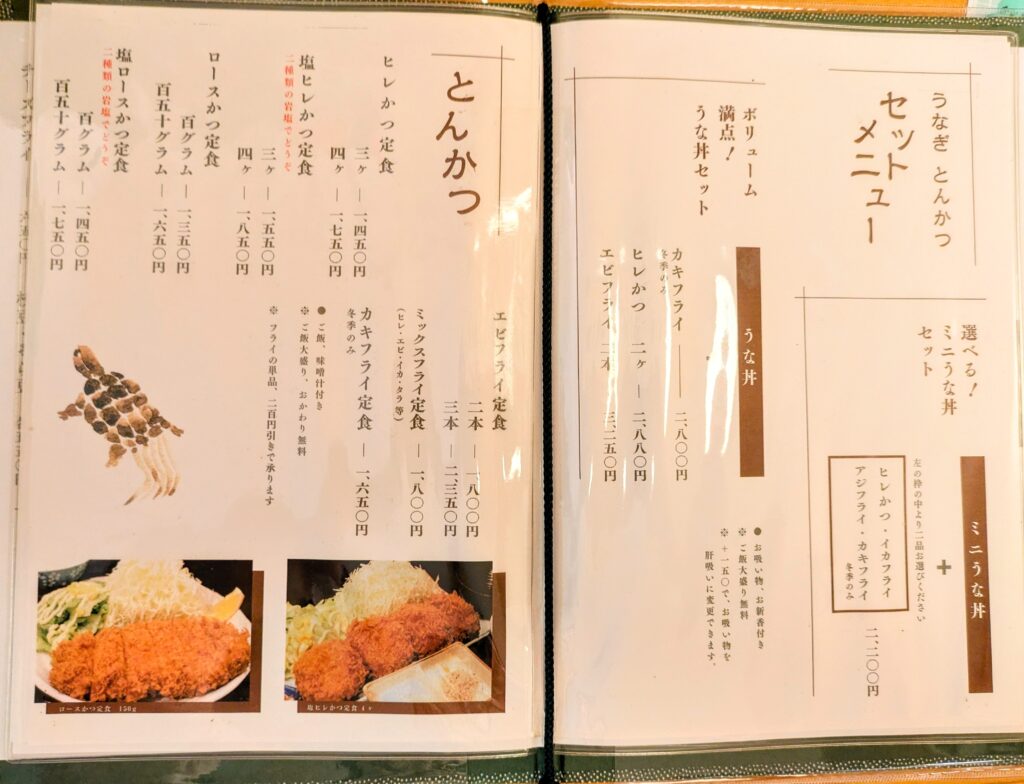 うなぎ とんかつ
セット
メニュー
選べる！
ミニうな丼
セット
ミニうな丼
+
左の枠の中より二品お選びください
ヒレかつ・イカフライ
アジフライ・カキフライ
冬季のみ
二、二〇〇円
ボリューム
満点！
うな丼セット
うな丼
カキフライ ― 二、八〇〇円
冬季のみ
ヒレかつ 二ヶ ― 二、八八〇円
エビフライ 二本 三、二五〇円
● お吸い物、お新香付き
※ ご飯大盛り無料
※ +一五〇で、お吸い物を
肝吸いに変更できます。
とんかつ
ヒレかつ定食
三ヶ ― 一、四五〇円
四ヶ ― 一、七五〇円
塩ヒレかつ定食
二種類の岩塩でどうぞ
三ヶ ― 一、五五〇円
四ヶ ― 一、八五〇円
ロースかつ定食
百グラム ― 一、三五〇円
百五十グラム ― 一、六五〇円
塩ロースかつ定食
二種類の岩塩でどうぞ
百グラム ― 一、四五〇円
百五十グラム ― 一、七五〇円
エビフライ定食
二本 ― 一、八〇〇円
三本 ― 二、三五〇円
ミックスフライ定食 ― 一、八〇〇円
（ヒレ・エビ・イカ・タラ 等）
カキフライ定食 ― 一、六五〇円
冬季のみ
● ご飯、味噌付き
※ ご飯大盛り、おかわり無料
※ フライの単品、二百円引きで承ります
ロースかつ定食 150g
塩ヒレかつ定食 4ヶ